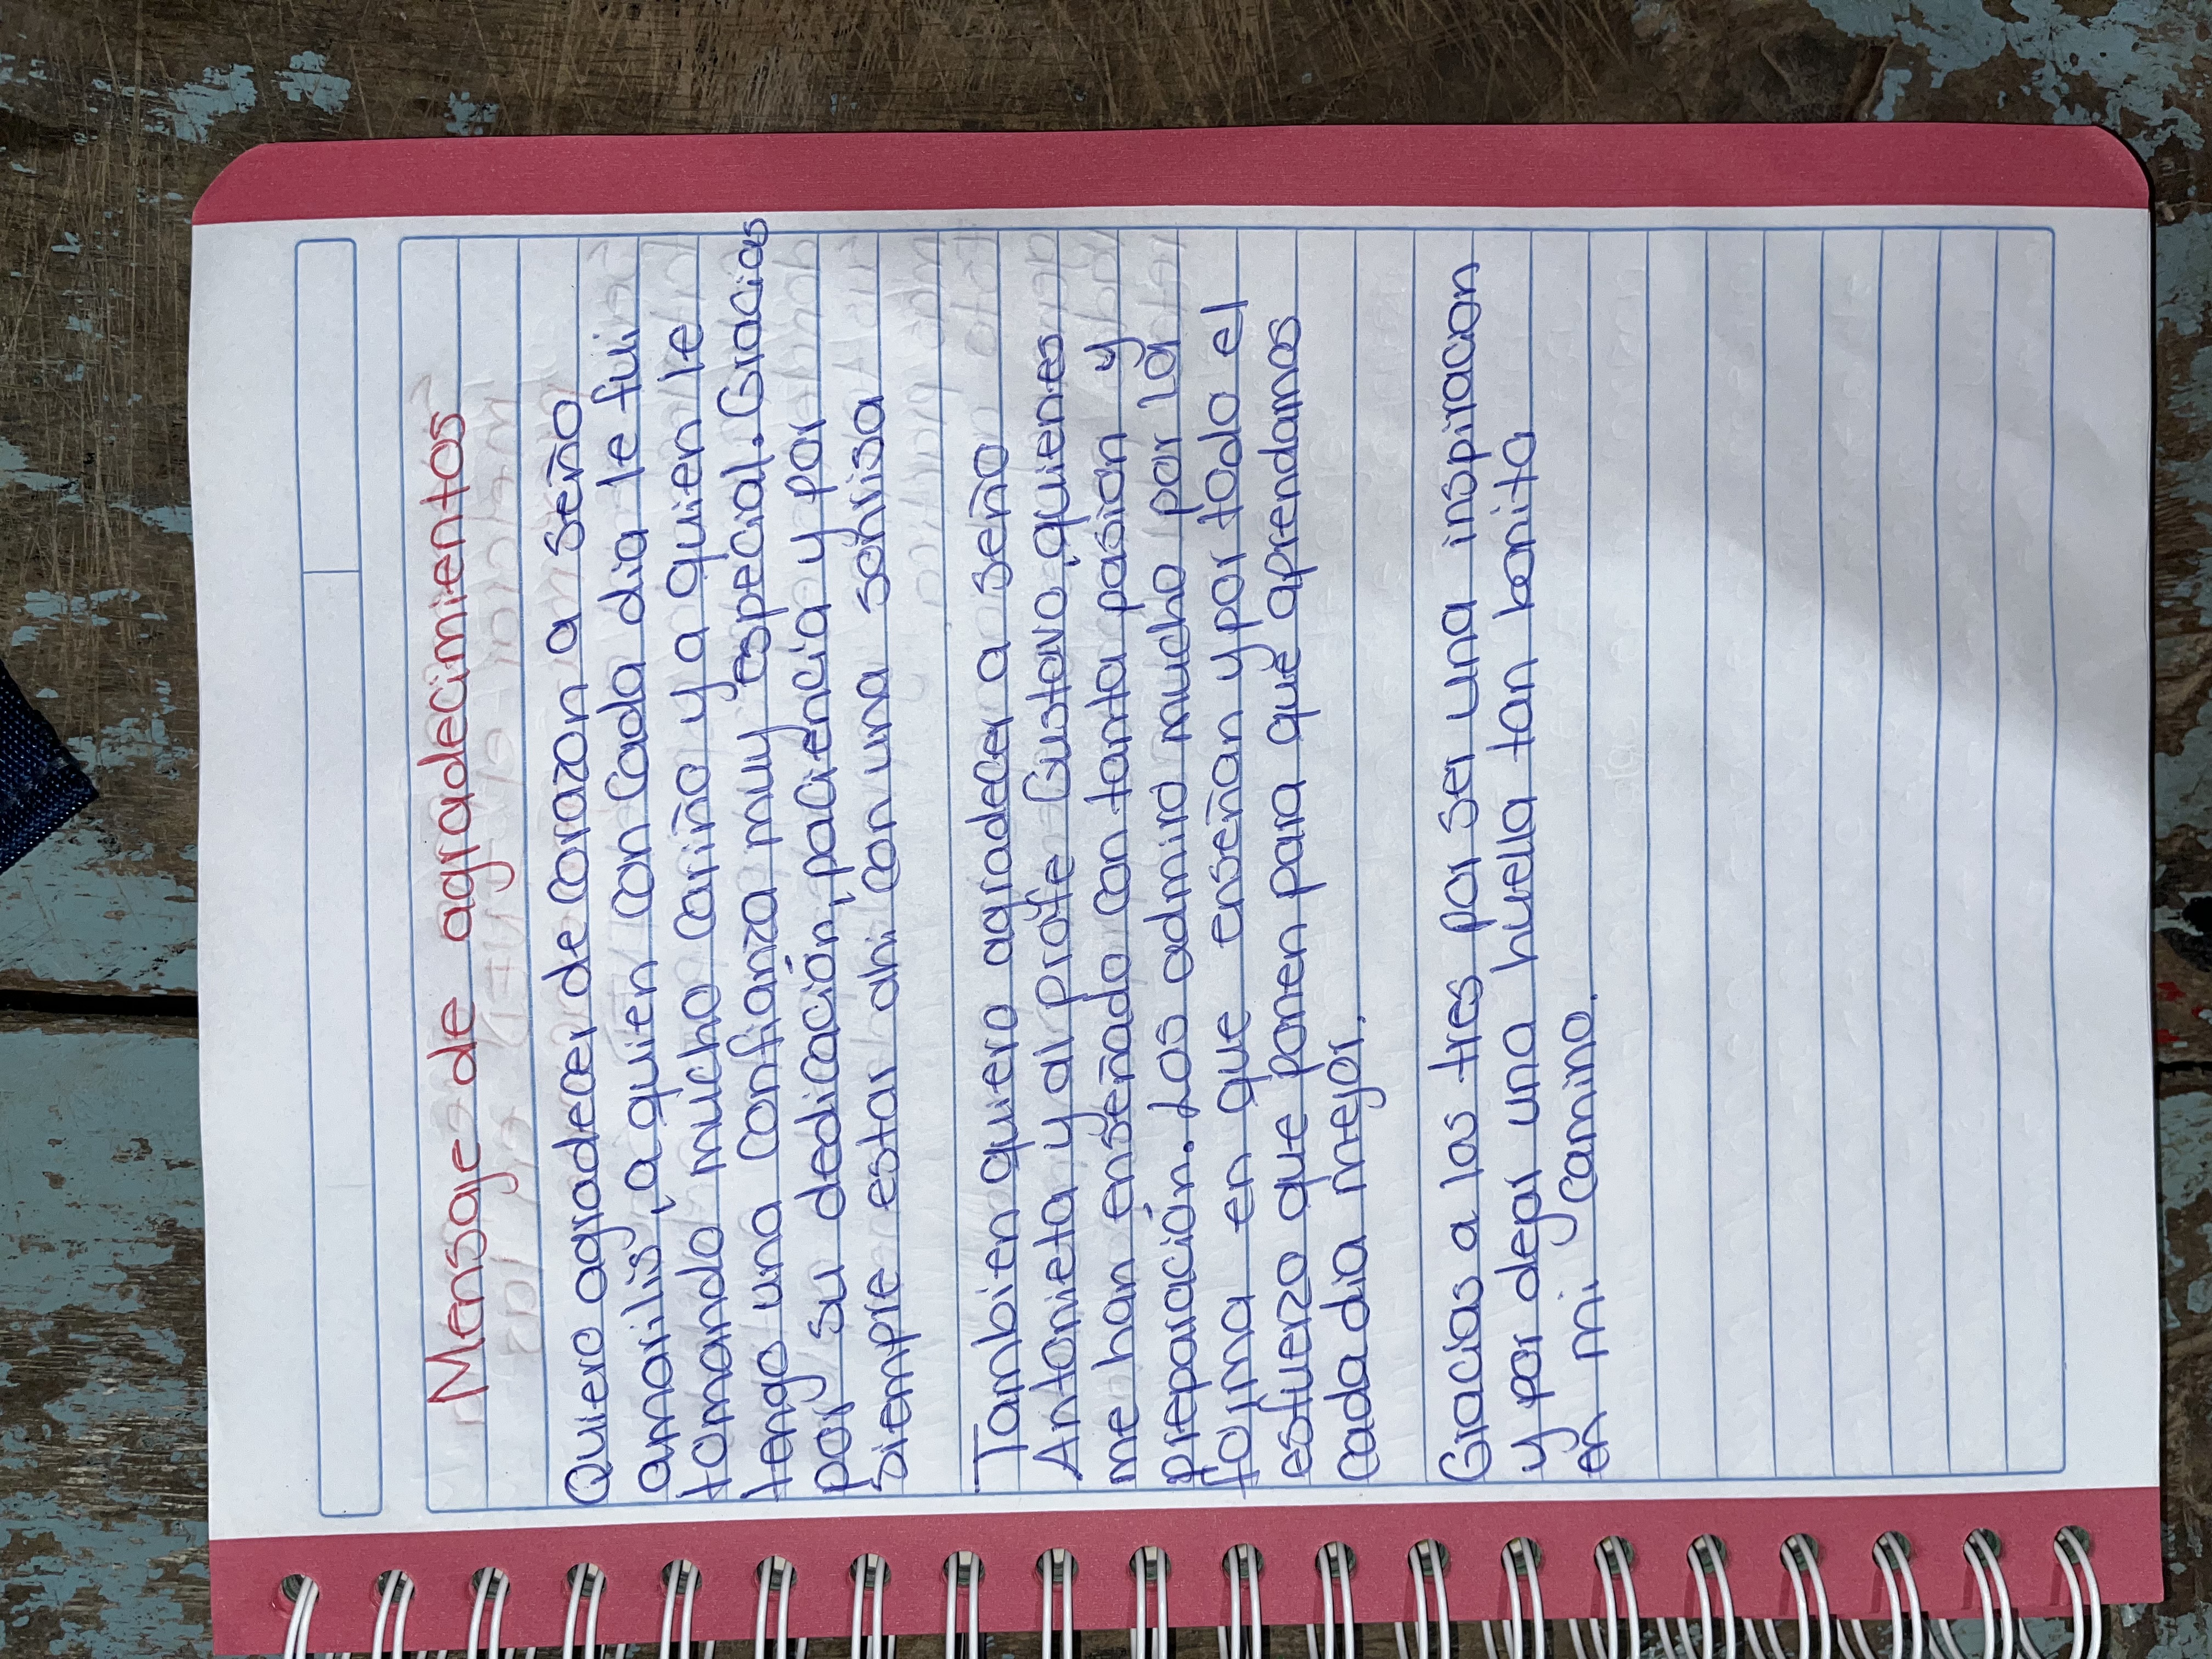 Mensaje de agradecimientos
Quiero agradecer de corazon a seño
amarilis, a quien con cada dia le fui
tomando mucho cariño y a quien le
tengo una confianza muy especial. Gracias
por su dedicación, paciencia y por
siempre estar ahi con una sonrisa
Tambien quiero agradecer a seño
Antonieta y al profe Gustavo, quienes
me han enseñado con tanta pasion y
preparación. Los admiro mucho por la
forma en que enseñan y por todo el
esfuerzo que ponen para que aprendamos
cada dia mejor.
Gracias a los tres por ser una inspiracon
y por dejar una huella tan bonita
en mi camino.